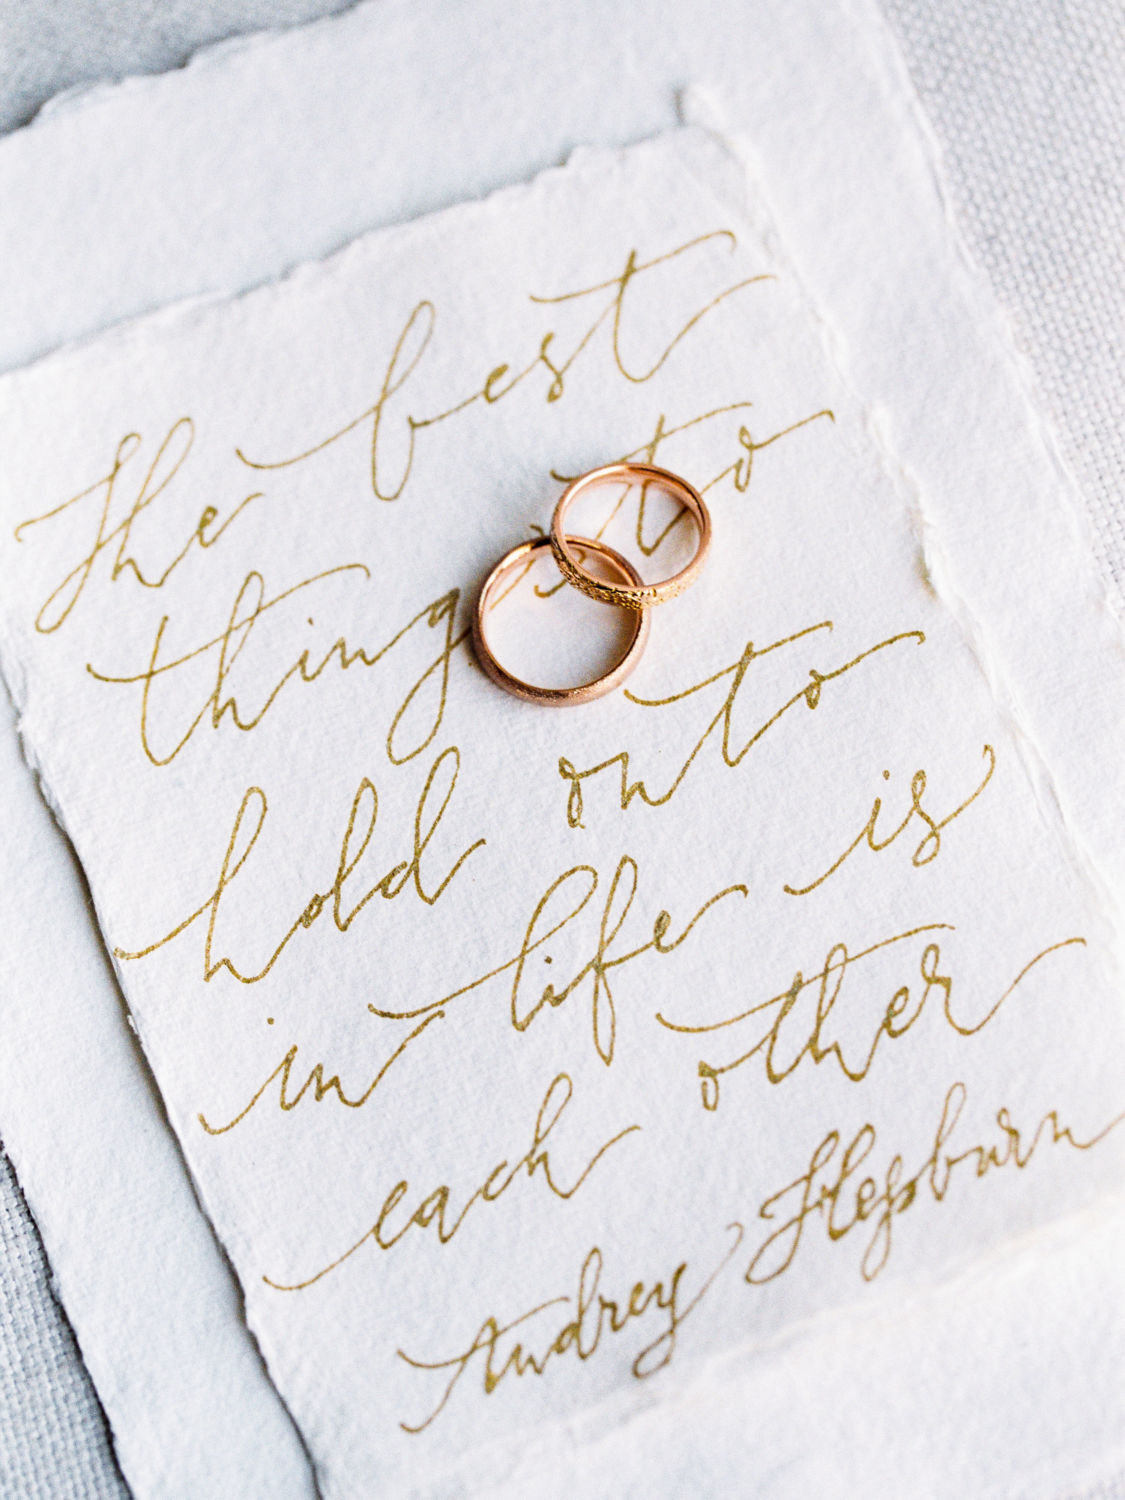 The best
things to
hold onto
in life is
each other
Audrey Hepburn